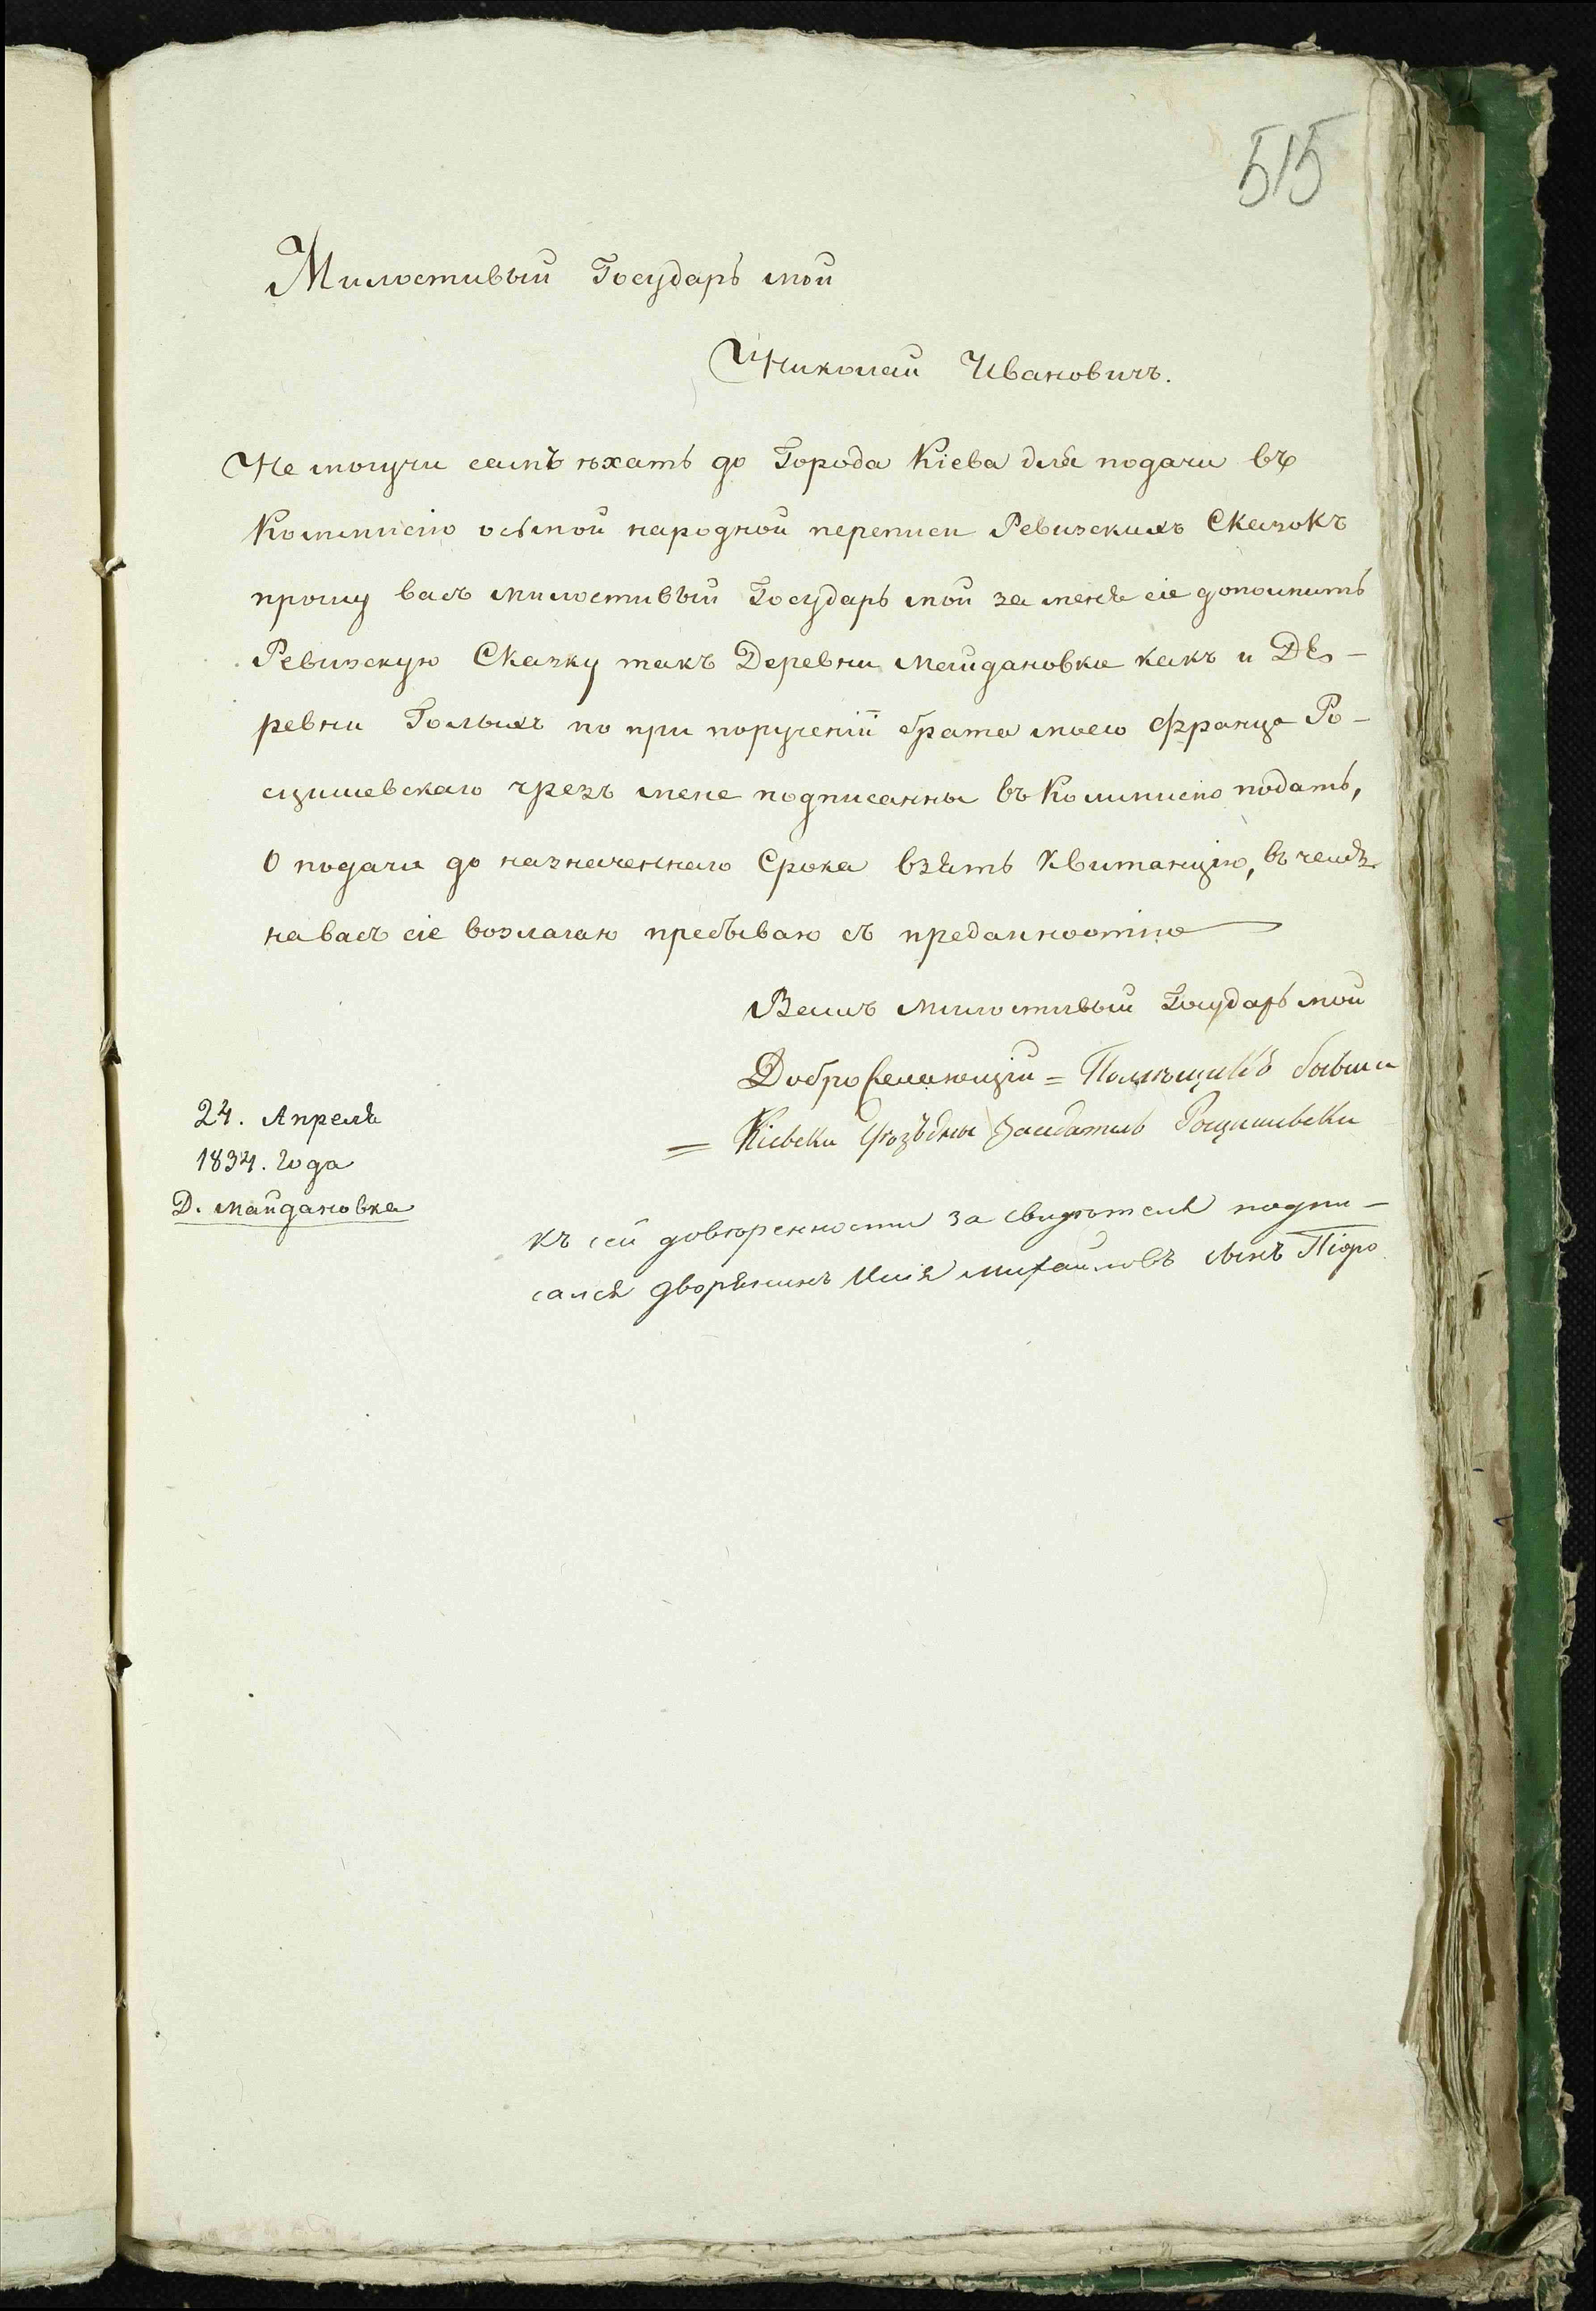 515
Милостивый Государь мой
Николай Ивановичъ.
Не могучи самъ ѣхать до Города Кіева для подачи въ
Коммисію осьмой народной переписи Ревизскихъ Сказокъ
прошу васъ милостивый Государь мой за меня сіе дополнить
Ревизскую Сказку такъ Деревни Майдановки какъ и Де-
ревни Голыхъ по при порученіи брата моего Франца Ро-
сцишевскаго чрезъ мене подписанны въ Коммисію подать,
О подачи до назначеннаго Срока взять Квитанцію, въ чемъ
на васъ сіе возлагаю пребываю съ преданностію
Вашъ милостивый Государь мой
Доброжелающій = Помѣщикъ бывши
= Кіевски Уѣздны Засѣдатель Росцишевски
24. Апреля
1834. Года
Д. Майдановка
къ сей довѣренности за свидѣтеля подпи-
сался дворянинъ Илія Михайловъ сынъ Піоро